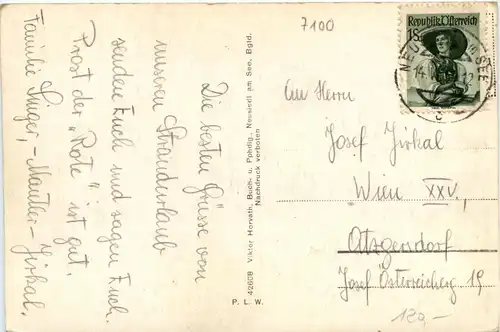 7100
Republik Österreich
1S
NEU
SEE
14.
Die besten Grüsse von
unserem Strandurlaub
senden Euch und sagen Euch.
Prost der „Rote" ist gut.
Familie Singer, - Mautler - Jirkal.
42608 Viktor Horvath, Buch- u. Pphdlg., Neusiedl am See, Bgld.
Nachdruck verboten
P. L. W.
Herrn
Josef Jirkal
Wien XXV,
Atzgersdorf
Josef Österreicherg 19
120-